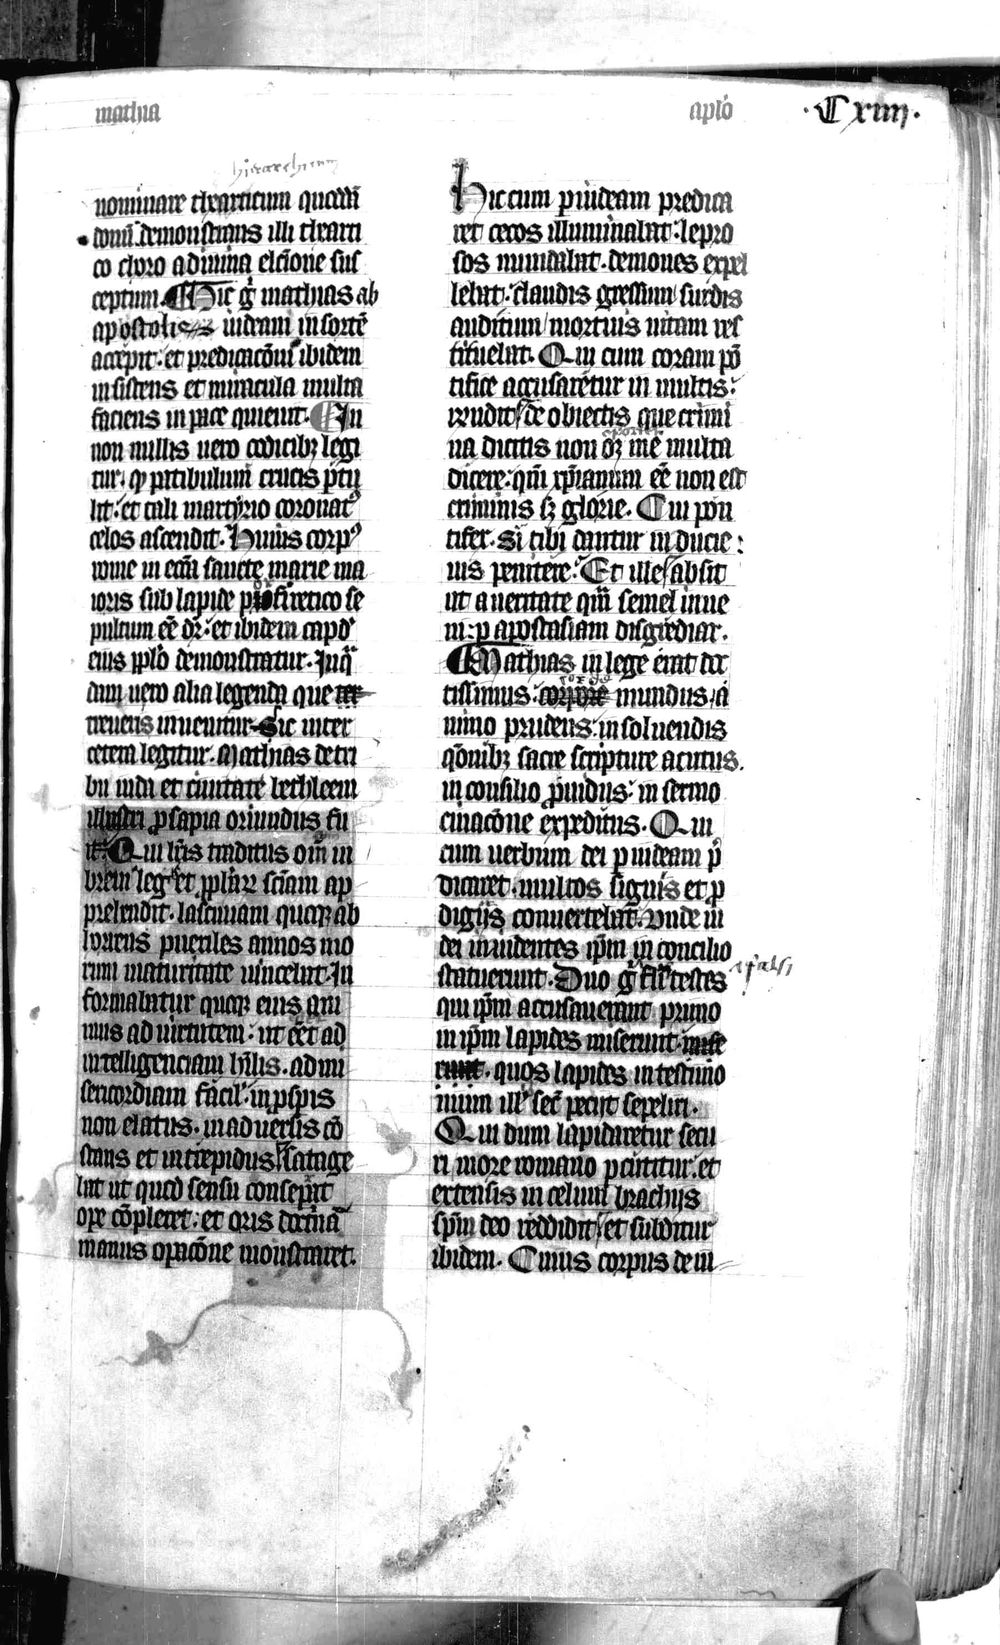 mathia
aplo
Cxiiij.
hierarchicum
nominare thearticum quoddā
donū demonstrans illi thearti
co choro a diuina elcione sus
ceptum. Hic g̃ mathias ab
apostolis iudeam in sortē
accepit. et predicacōni ibidem
insistens et miracula multa
faciens in pace quieuit. In
non nullis uero codicibꝫ legi
tur. ꝙ patibulum crucis ꝑtu
lit. et tali martyrio coronatꝰ
celos ascendit. Huius corpꝰ
rome in ecc̄ia sancte marie ma
ioris sub lapide porfiretico se
pultum eē dr̄. et ibidem capđ
eius pplo demonstratur. In qͣ
dam uero alia legenda que
treueris inuenitur. Sic inter
cetera legitur. Mathias de tri
bu iuda et ciuitate bethleem
illustri ꝓsapia oriundus fu
it. Qui lr̄is traditus om̄i in
breui leg et ꝓphārꝝ sciam ap
prehendit. lasciuiam quoqꝫ ab
horrens pueriles annos mo
rum maturitate uincebat. In
formabatur quoqꝫ eius ani
mus ad uirtutem. ut eēt ad
intelligenciam hīlis. ad mi
sericordiam facil. in ꝓspis
non elatus. in aduersis cō
stans et intrepidus satage
bat ut quod sensu conseperit
ope cōpleret. et oris doctrinā
manus opacōne monstraret.
Hic cum ꝑ iudeam predica
ret cecos illuminabat. lepro
sos mundabat. demones expel
lebat. claudis gressum surdis
auditum mortuis uitam res
tituebat. Qui cum coram pō
tifice accusaretur in multis.
rendit de obiectis que crimi
na dicitis non oꝫ me multa
oportet
dicere. qm̄ xp̄ianum eē non est
criminis sꝫ glorie. Cui pon
tifex. Si tibi dantur inducie
uis penitere. Et ille absit
ut a ueritate qm̄ semel inue
ni ꝑ apostasiam disgrediar.
Mathias in lege erat doc
tissimus. corpore mundus. a
nimo prudens. in soluendis
qōnibꝫ sacre scripture acutus.
in consilio ꝓuidus. in sermo
cinacōne expeditus. Qui
cum uerbum dei ꝑ iudeam p̄
dicaret. multos signis et ꝓ
digijs conuertebat. Vnde iu
dei inuidentes ip̄m in concilio
statuerunt. Duo g̃ testes
falsi
qui ip̄m accusauerant primo
in ip̄m lapides miserunt.
quos lapides in testimo
nium ill sec̄ peciit sepeliri.
Qui dum lapidaretur secu
ri more romano ꝑcutitur. et
extensis in celum brachijs
sp̄m deo reddidit. et subditur
ibidem. Cuius corpus de iu